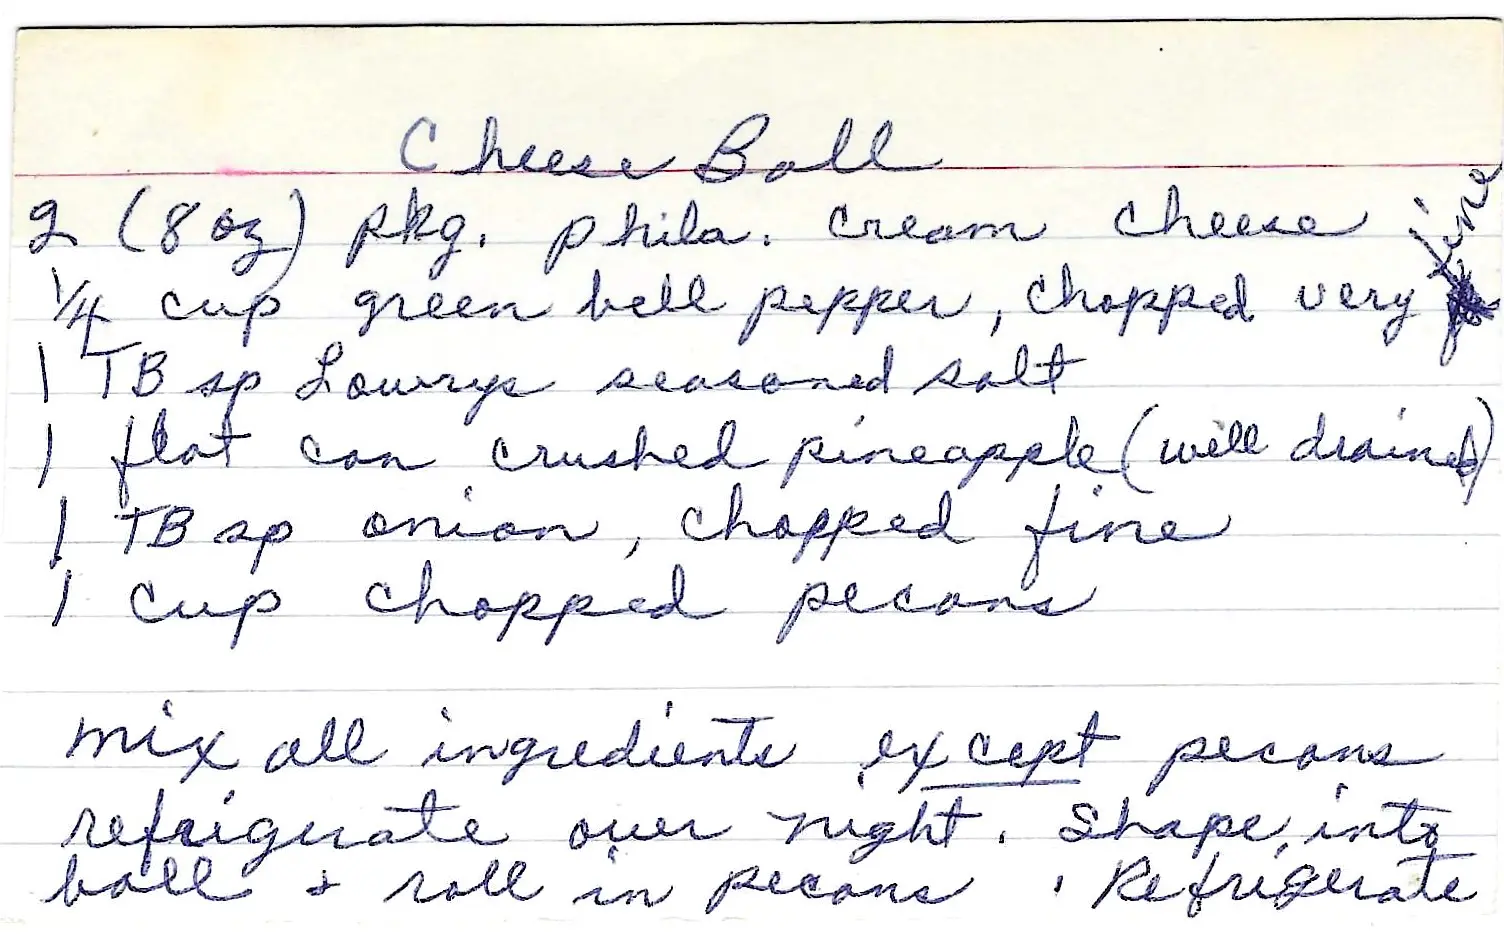 Cheese Ball
2 (8 oz) pkg. phila. cream cheese
1/4 cup green bell pepper, chopped very fine
1 TB sp Lowrys seasoned salt
1 flat can crushed pineapple (well drained)
1 TB sp onion, chopped fine
1 cup chopped pecans
mix all ingredients except pecans
refrigerate over night. Shape into
ball + roll in pecans. Refrigerate